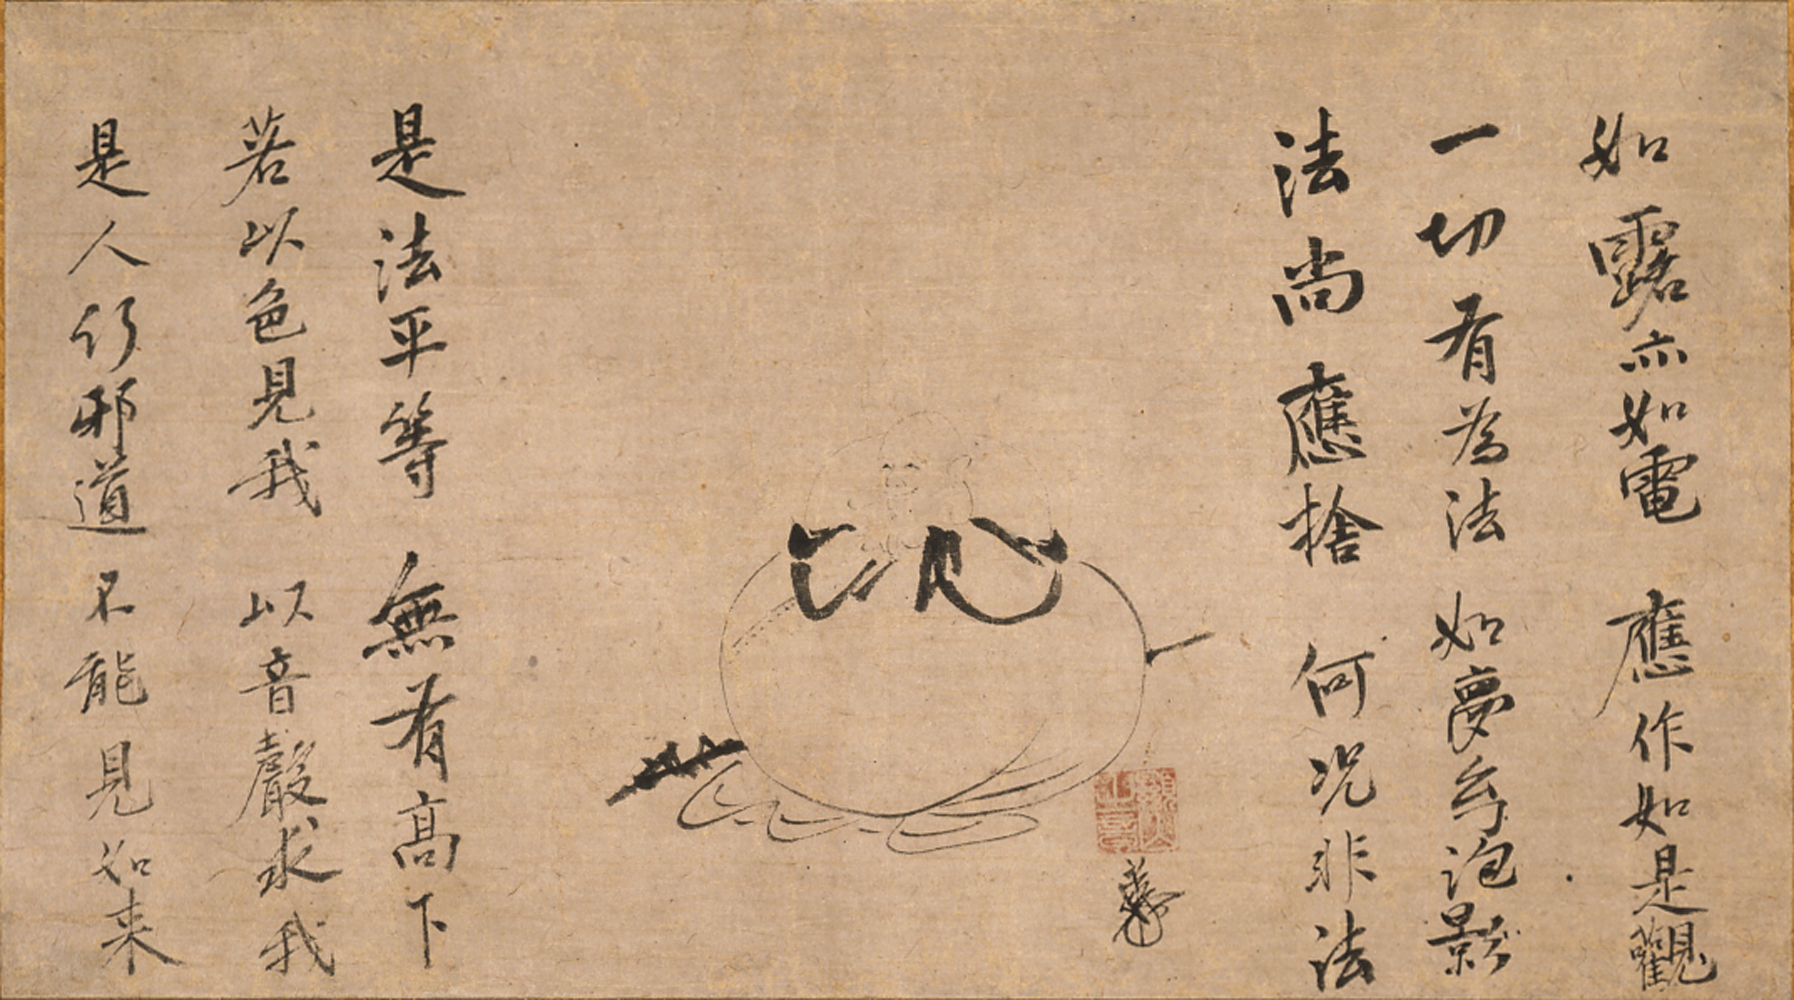 法尚應捨何況非法
一切有為法如夢幻泡影
如露亦如電應作如是觀
是法平等無有高下
若以色見我以音聲求我
是人行邪道不能見如来